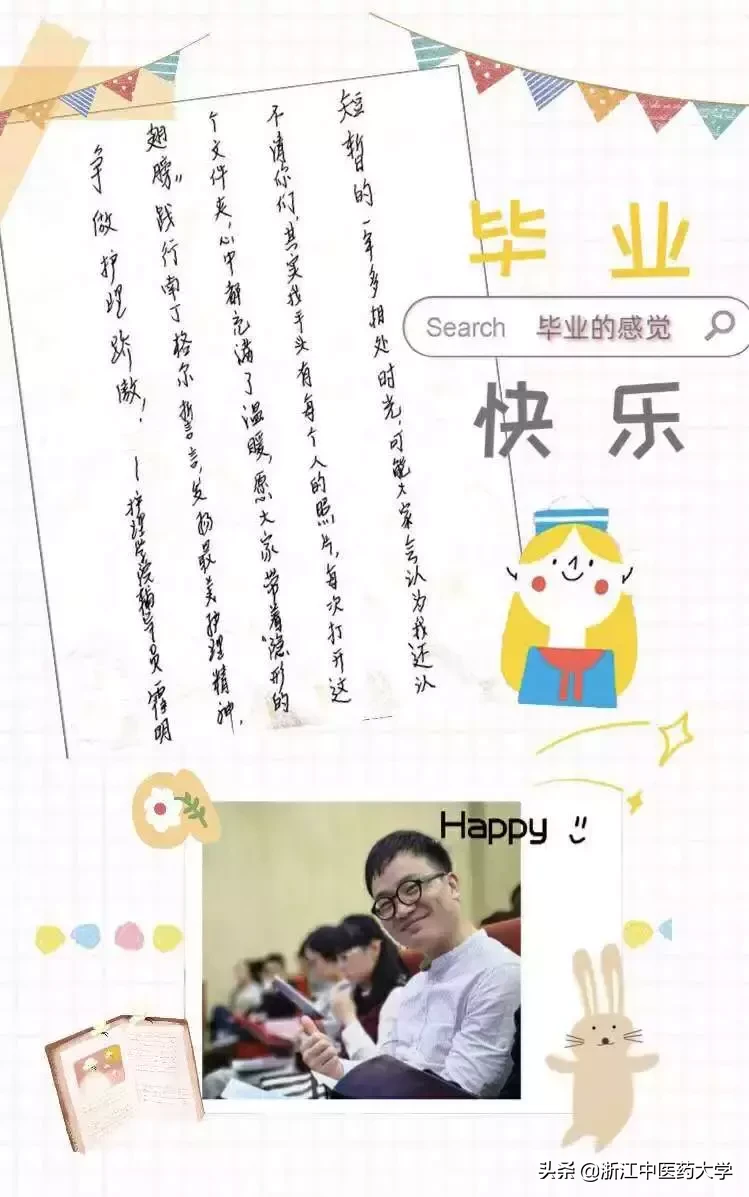 毕业
Search 毕业的感觉
快乐
短暂的一年多相处时光,可能大家会认为我还认
不清你们,其实我手头有每个人的照片,每次打开这
个文件夹,心中都充满了温暖,愿大家带着“隐形的
翅膀”践行南丁格尔誓言,发扬最美护理精神,
争做护理骄傲!
—护理学院辅导员 霍明
Happy
头条 @浙江中医药大学